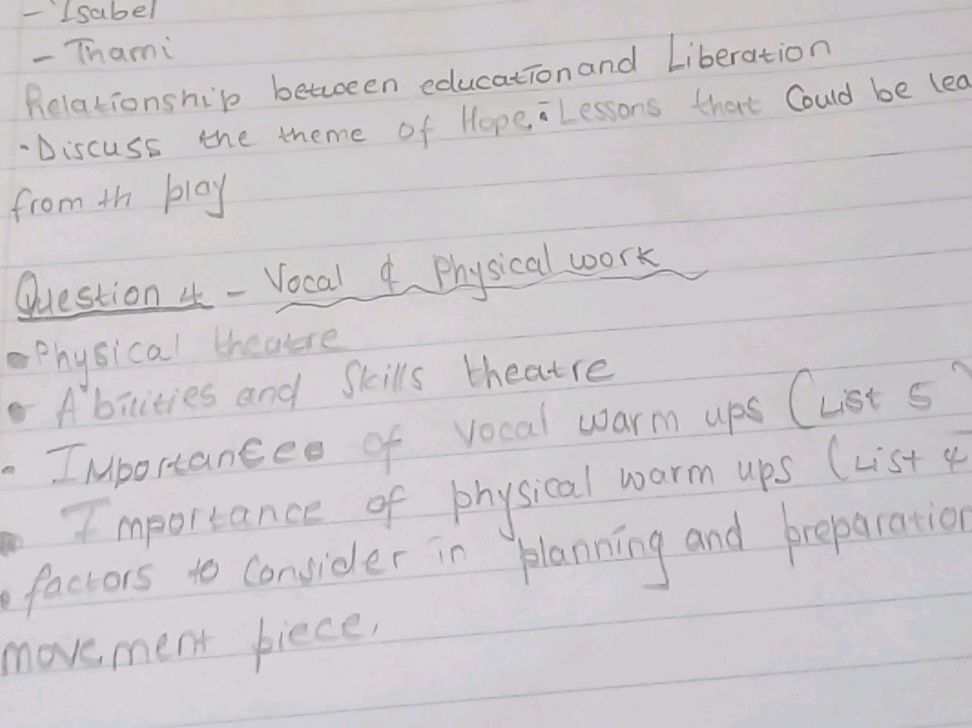 - Isabel
- Thami
Relationship between education and Liberation
• Discuss the theme of Hope. Lessons that Could be lea
from th play
Question 4 - Vocal & Physical work
• Physical theatre
• Abilities and Skills theatre
- Importancee of vocal warm ups (List 5
• Importance of physical warm ups (List 4
• factors to Consider in planning and preparation
movement piece.